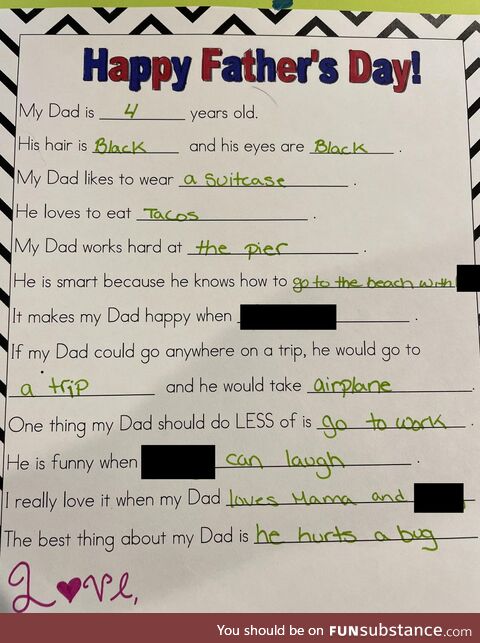 Happy Father's Day!
My Dad is 4 years old.
His hair is Black and his eyes are Black.
My Dad likes to wear a suitcase.
He loves to eat Tacos.
My Dad works hard at the pier.
He is smart because he knows how to go to the beach with
It makes my Dad happy when .
If my Dad could go anywhere on a trip, he would go to
a trip and he would take airplane.
One thing my Dad should do LESS of is go to work.
He is funny when can laugh.
I really love it when my Dad loves Mama and
The best thing about my Dad is he hurts a bug
Love,
You should be on FUNsubstance.com